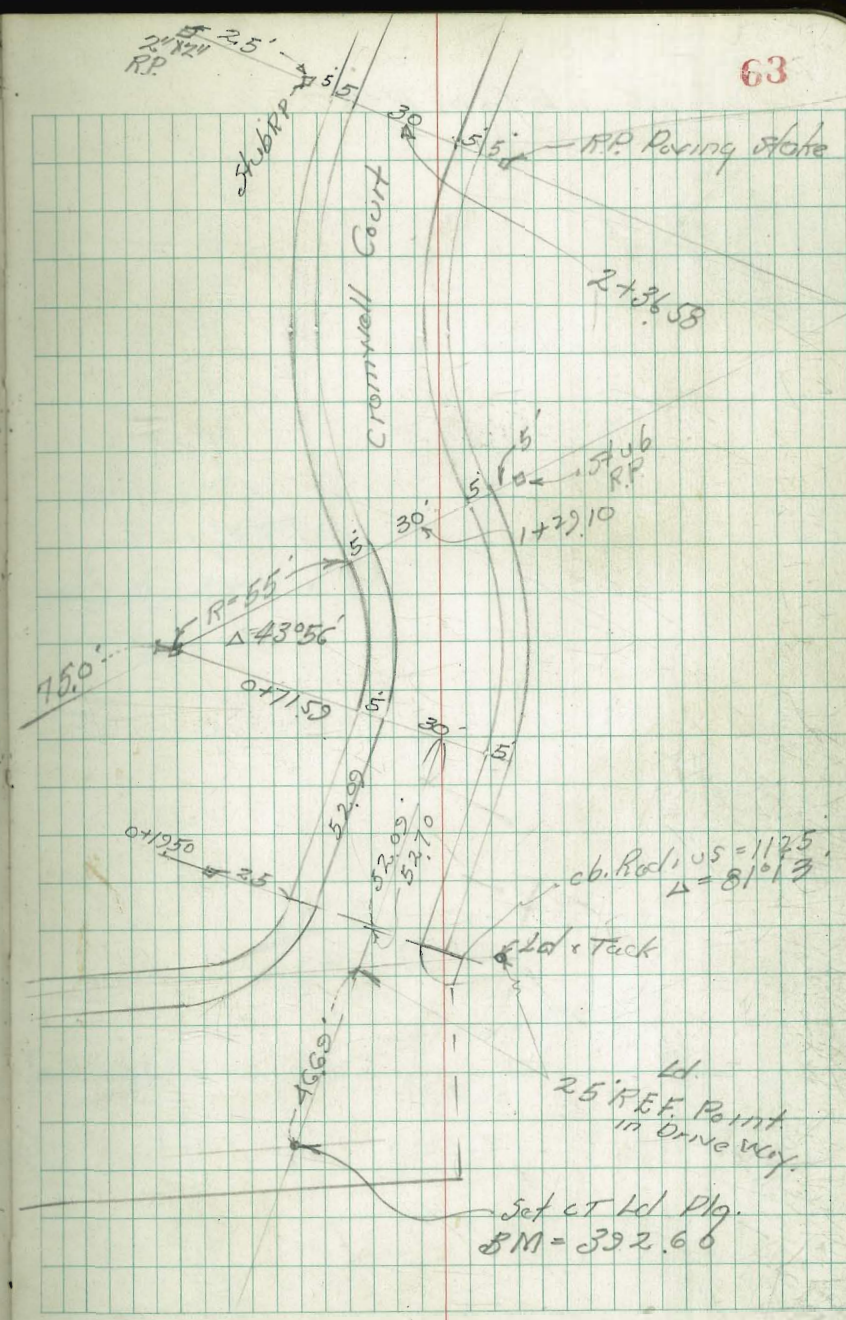 63
2"x24"
R.P.
2.5'
Stub RP
5'
5'
30
5'
5'
R.P. Paving stake
Cromwell Court
2+36.58
5'
5'
Stub
R.P.
30'
1+29.10
5'
R=55'
Δ 43°56'
75.0'
0+71.59
5'
30'
5'
52.09
52.09'
52.70
0+19.50
2.5
cb. Radius = 112.5
Δ = 81°13'
Ld & Tack
46.69'
Ld.
25' REF. Point
in Drive way.
Set CT Ld Plg.
BM = 392.60